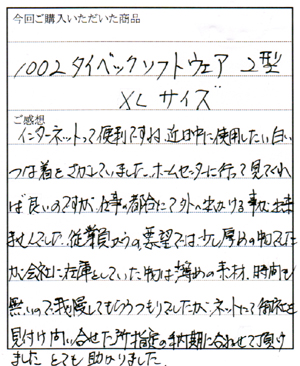 今回ご購入いただいた商品
1002タイベックソフトウェア 2型
XLサイズ
ご感想
インターネットって便利ですね。近日中に使用したい白い
つなぎをさがしていました。ホームセンターに行って見てくれ
ば良いのですが、仕事の都合にて外へ出かける事が出来
ませんでした。従業員からの要望では少し厚めの物でした
が、会社に在庫としていた物は薄めの素材、時間も
無いので我慢してもらうつもりでしたが、ネットにて御社を
見付け問い合せた所指定の納期に合わせて頂け
ました とても助かりました。